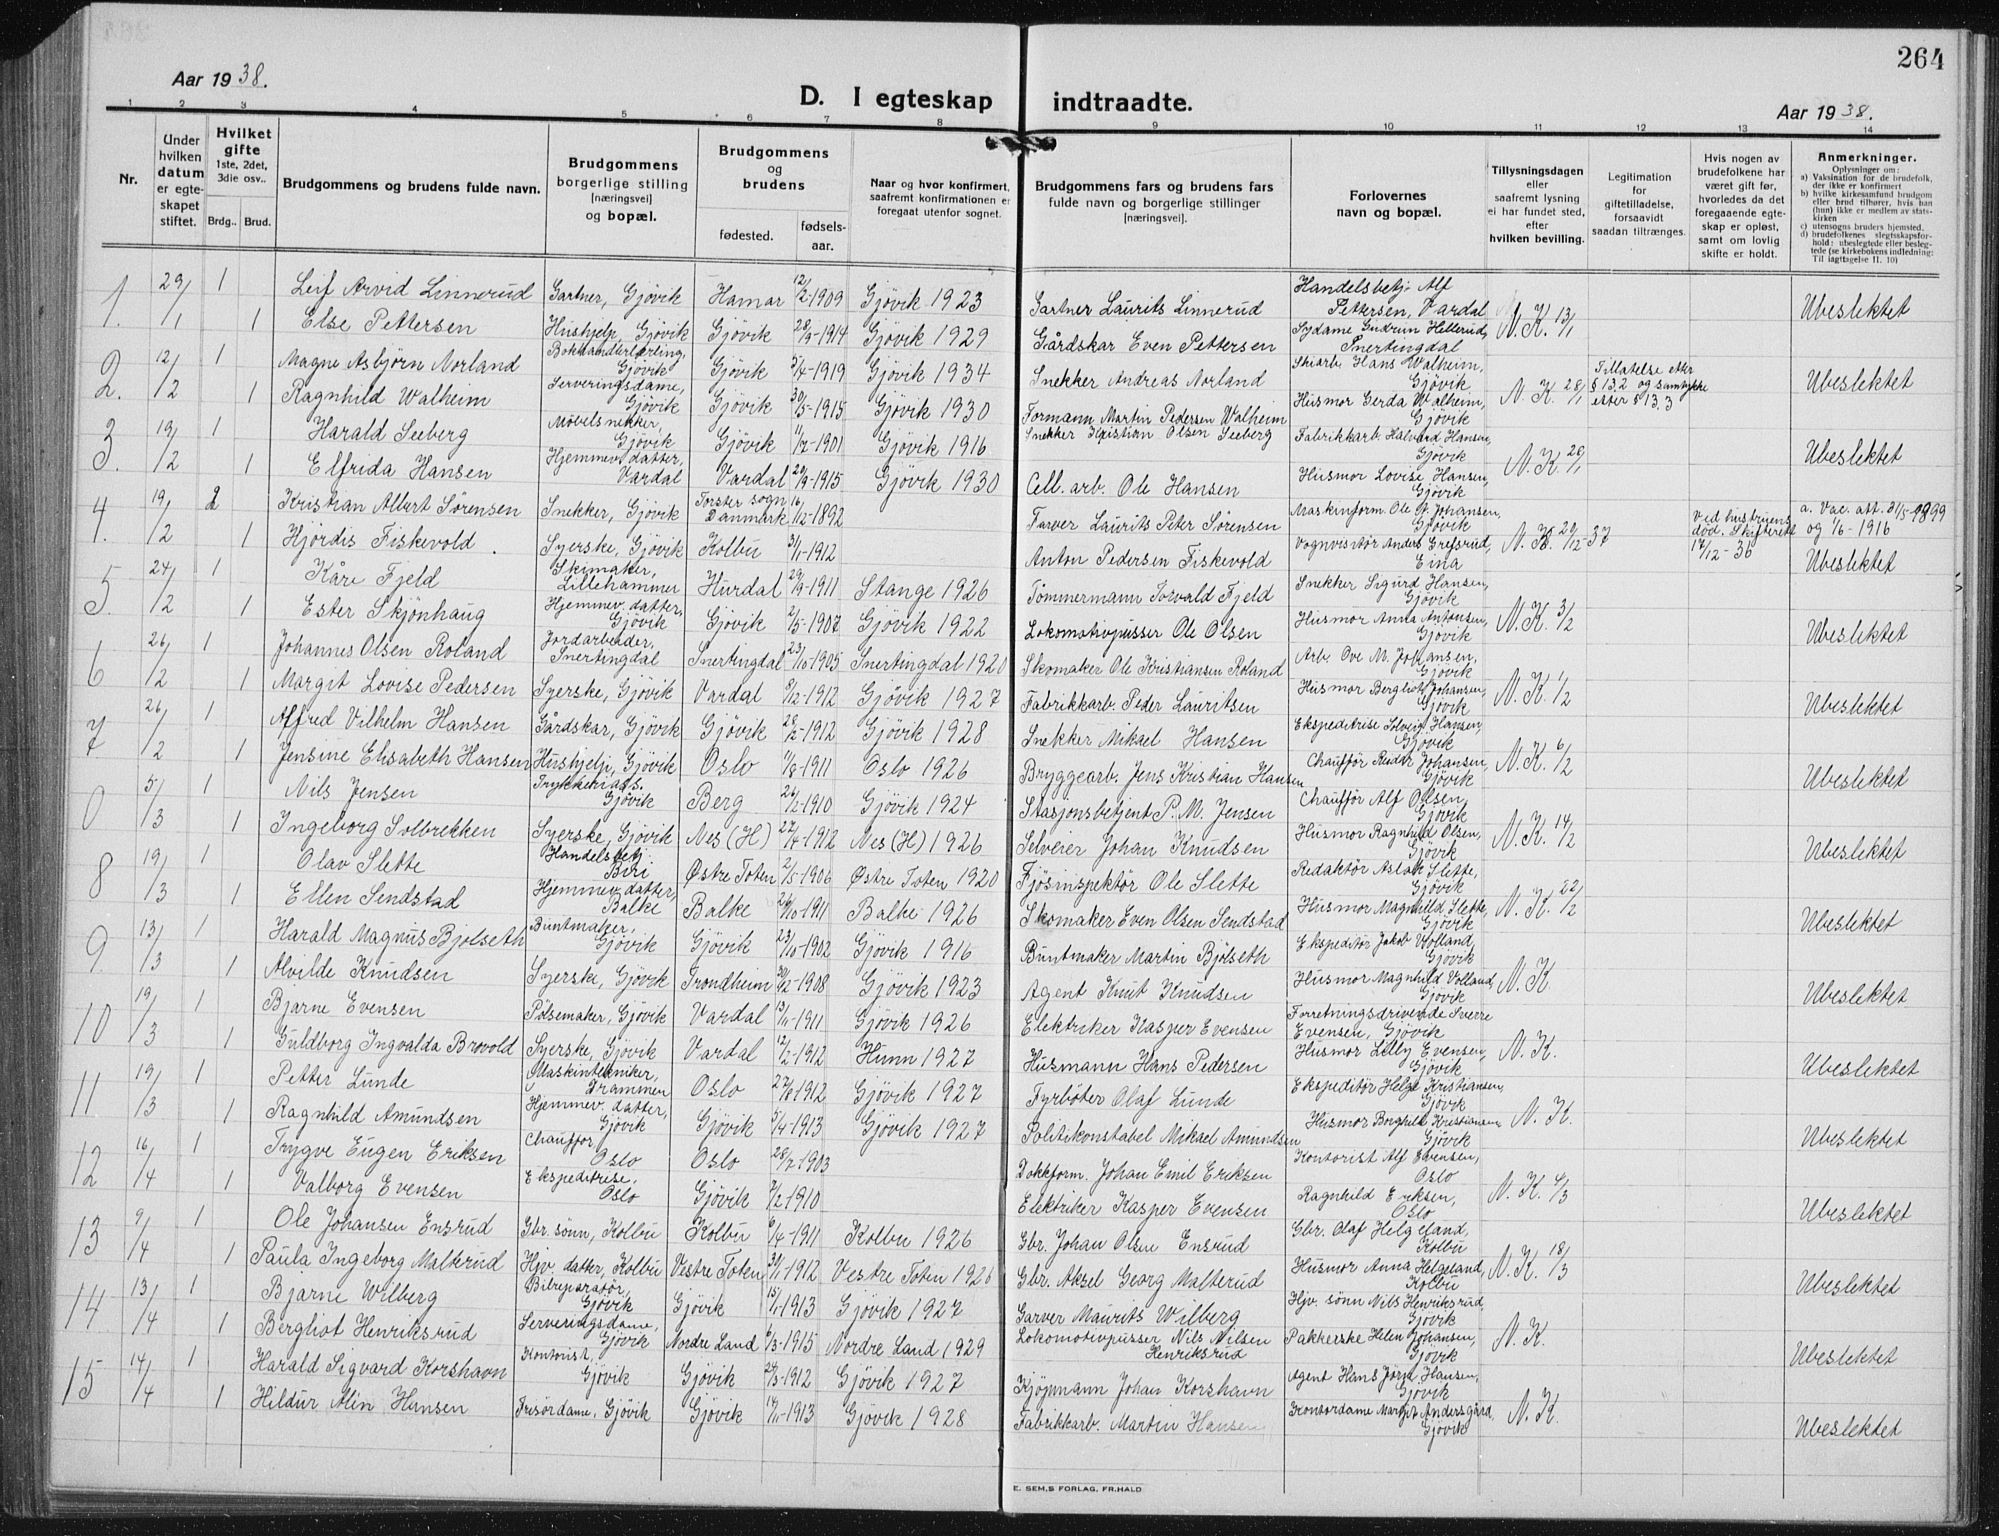 264
Aar 1938.
D. I egteskap indtraadte.
Aar 1938.
1 2 3 4 5 6 7 8 9 10 11 12 13 14
Nr.
Under hvilken datum er egteskapet stiftet.
Hvilket gifte 1ste, 2det, 3die osv..
Brdg.. Brud.
Brudgommens og brudens fulde navn.
Brudgommens borgerlige stilling [næringsvei] og bopæl.
Brudgommens og brudens
fødested. fødselsaar.
Naar og hvor konfirmert, saafremt konfirmationen er foregaat utenfor sognet.
Brudgommens fars og brudens fars fulde navn og borgerlige stillinger [næringsvei].
Forlovernes navn og bopæl.
Tillysningsdagen eller saafremt lysning ei har fundet sted, efter hvilken bevilling.
Legitimation for giftetilladelse, forsaavidt saadan tiltrænges.
Hvis nogen av brudefolkene har været gift før, hvorledes da det foregaaende egteskap er opløst, samt om lovlig skifte er holdt.
Anmerkninger.
Oplysninger om:
a) Vaksination for de brudefolk, der ikke er konfirmert
b) hvilke kirkesamfund brudgom eller brud tilhører, hvis han (hun) ikke er medlem av statskirken
c) utensogns bruders hjemsted.
d) brudefolkenes slegtsskapsforhold: ubeslegtede eller beslegtede (se kirkebokens indledning: Til iagttagelse II. 10)
1. 29/1 1 Leif Arvid Linnerud Gartner, Gjövik Hamar 12/2-1909 Gjövik 1923 Gartner Laurits Linnerud Handelsbetj. Alf Pettersen, Vardal N.K. 13/1 Ubeslektet
1 Else Pettersen Hushjelp, Gjövik Gjövik 28/9-1914 Gjövik 1929 Gårdskar Even Pettersen Sydame Gudrun Hellerud, Snertingdal
2. 12/2 1 Magne Asbjörn Norland Bokhandlerlærling, Gjövik Gjövik 5/4-1919 Gjövik 1934 Snekker Andreas Norland Skiarb. Hans Walheim, Gjövik N.K. 28/1 Tillatelse etter § 13,2 og samtykke etter § 13,3 Ubeslektet
1 Ragnhild Walheim Serveringsdame, Gjövik Gjövik 30/5-1915 Gjövik 1930 Formann Martin Pedersen Walheim Husmor Gerda Walheim, Gjövik
3. 19/2 1 Harald Seeberg Møbelsnekker, Gjövik Gjövik 11/7-1901 Gjövik 1916 Snekker Kristian Olsen Seeberg Fabrikkarb. Halvard Hansen, Gjövik N.K. 28/1 Ubeslektet
1 Elfrida Hansen Hjemmev. datter, Vardal Vardal 20/9-1915 Gjövik 1930 Cell. arb. Ole Hansen Husmor Lovise Hansen, Gjövik
4. 19/2 2 Kristian Albert Sörensen Snekker, Gjövik Danmark 16/12-1892 Farver Laurits Peter Sörensen Maskinform. Ole Johansen, Gjövik N.K. 20/12-37 Ved hustruens död. Skifterett 17/12-36 a. Vac. att. 31/5-1899 og 1/6-1916
1 Hjördis Fiskevold Syerske, Gjövik Kolbu 3/1-1912 Anton Pedersen Fiskevold Vognvisitör Anders Grefsrud, Eina Ubeslektet
5. 24/2 1 Kåre Fjeld Skimaker, Lillehammer Hurdal 29/9-1911 Stange 1926 Tömmermann Torvald Fjeld Snekker Sigurd Hansen, Gjövik N.K. 3/2 Ubeslektet
1 Ester Skjönhaug Hjemmev. datter, Gjövik Gjövik 2/5-1907 Gjövik 1922 Lokomotivpusser Ole Olsen Husmor Anna Antonsen, Gjövik
6 26/2 1 Johannes Olsen Roland Jordarbeider, Snertingdal Snertingdal 23/10-1905 Snertingdal 1920 Skomaker Ole Kristiansen Roland Arb. Ove M. Johansen, Gjövik N.K. 1/2 Ubeslektet
1 Margit Lovise Pedersen Syerske, Gjövik Vardal 8/12-1912 Gjövik 1927 Fabrikkarb. Peder Lauritsen Husmor Bergliot Johansen, Gjövik
7 26/2 1 Alfred Vilhelm Hansen Gårdskar, Gjövik Gjövik 28/2-1912 Gjövik 1928 Snekker Mikael Hansen Ekspeditrise Solveig Hansen, Gjövik N.K. 6/2 Ubeslektet
1 Jensine Elisabeth Hansen Hushjelp, Gjövik Oslo 1/8-1911 Oslo 1926 Bryggearb. Jens Kristian Hansen Chaufför Reidar Johansen, Gjövik
0 5/3 1 Nils Jensen Gjövik Berg 26/2-1910 Gjövik 1924 Stasjonsbetjent P. M. Jensen Chaufför Alf Olsen, Gjövik N.K. 14/2 Ubeslektet
1 Ingeborg Solbrekken Syerske, Gjövik Nes (H) 27/4-1912 Nes (H) 1926 Selveier Johan Knudsen Husmor Ragnhild Olsen, Gjövik
8 19/3 1 Olav Slette Handelsbetj. Biri Østre Toten 2/5-1906 Østre Toten 1920 Fjösinspektör Ole Slette Redaktör Aslak Slette, Gjövik N.K. 22/2 Ubeslektet
1 Ellen Sendstad Hjemmev. datter, Balke Balke 26/10-1911 Balke 1926 Skomaker Even Olsen Sendstad Husmor Magnhild Slette, Gjövik
9 13/3 1 Harald Magnus Bjölseth Buntmaker, Gjövik Gjövik 23/10-1902 Gjövik 1916 Buntmaker Martin Bjölseth Ekspeditör Jakob Volland, Gjövik N.K. Ubeslektet
1 Alvilde Knudsen Syerske, Gjövik Trondheim 30/12-1908 Gjövik 1923 Agent Knut Knudsen Husmor Magnhild Volland, Gjövik
10 19/3 1 Bjarne Evensen Pölsemaker, Gjövik Vardal 13/11-1911 Gjövik 1926 Elektriker Kasper Evensen Forretningsdrivende Sverre Evensen, Gjövik N.K. Ubeslektet
1 Guldborg Ingvalda Brovold Syerske, Gjövik Vardal 12/2-1912 Hunn 1927 Husmann Hans Pedersen Husmor Lilly Evensen, Gjövik
11 19/3 1 Petter Lunde Maskintekniker, Drammen Oslo 27/8-1912 Gjövik 1927 Fyrböter Olaf Lunde Ekspeditör Helge Kristiansen, Gjövik N.K. Ubeslektet
1 Ragnhild Amundsen Hjemmev. datter, Gjövik Gjövik 5/4-1913 Gjövik 1927 Politikonstabel Mikael Amundsen Husmor Borghild Kristiansen, Gjövik
12 16/4 1 Trygve Eugen Eriksen Chauffør Oslo Oslo 28/7-1903 Dokkform. Johan Emil Eriksen Kontorist Alf Evensen, Oslo N.K. 4/3 Ubeslektet
1 Valborg Evensen Ekspeditrise, Oslo Gjövik 7/2-1910 Elektriker Kasper Evensen Ragnhild Eriksen, Oslo
13 9/4 1 Ole Johansen Ensrud Gbr. sönn, Kolbu Kolbu 6/4-1911 Kolbu 1926 Gbr. Johan Olsen Ensrud Gbr. Olaf Helgeland, Kolbu N.K. 18/3 Ubeslektet
1 Paula Ingeborg Malterud Hjv. datter, Kolbu Vestre Toten 31/1-1912 Vestre Toten 1926 Gbr. Aksel Georg Malterud Husmor Anna Helgeland, Kolbu
14 13/4 1 Bjarne Wilberg Bilreparatör, Gjövik Gjövik 15/1-1913 Gjövik 1927 Garver Maurits Wilberg Hjv. sönn Nils Henriksrud, Gjövik N.K. Ubeslektet
1 Berghot Henriksrud Serveringsdame, Gjövik Nordre Land 6/3-1915 Nordre Land 1929 Lokomotivpusser Nils Nilsen Henriksrud Pakkerske Helen Johansen, Gjövik
15 14/4 1 Harald Sigvard Korshavn Kontorist, Gjövik Gjövik 24/3-1912 Gjövik 1927 Kjöpmann Johan Korshavn Agent Hans Jörg. Hansen, Gjövik N.K. Ubeslektet
1 Hildur Alin Hansen Frisördame, Gjövik Gjövik 14/11-1913 Gjövik 1928 Fabrikkarb. Martin Hansen Kontordame Margit Andersgård, Gjövik
E. SEM,S FORLAG, FR.HALD